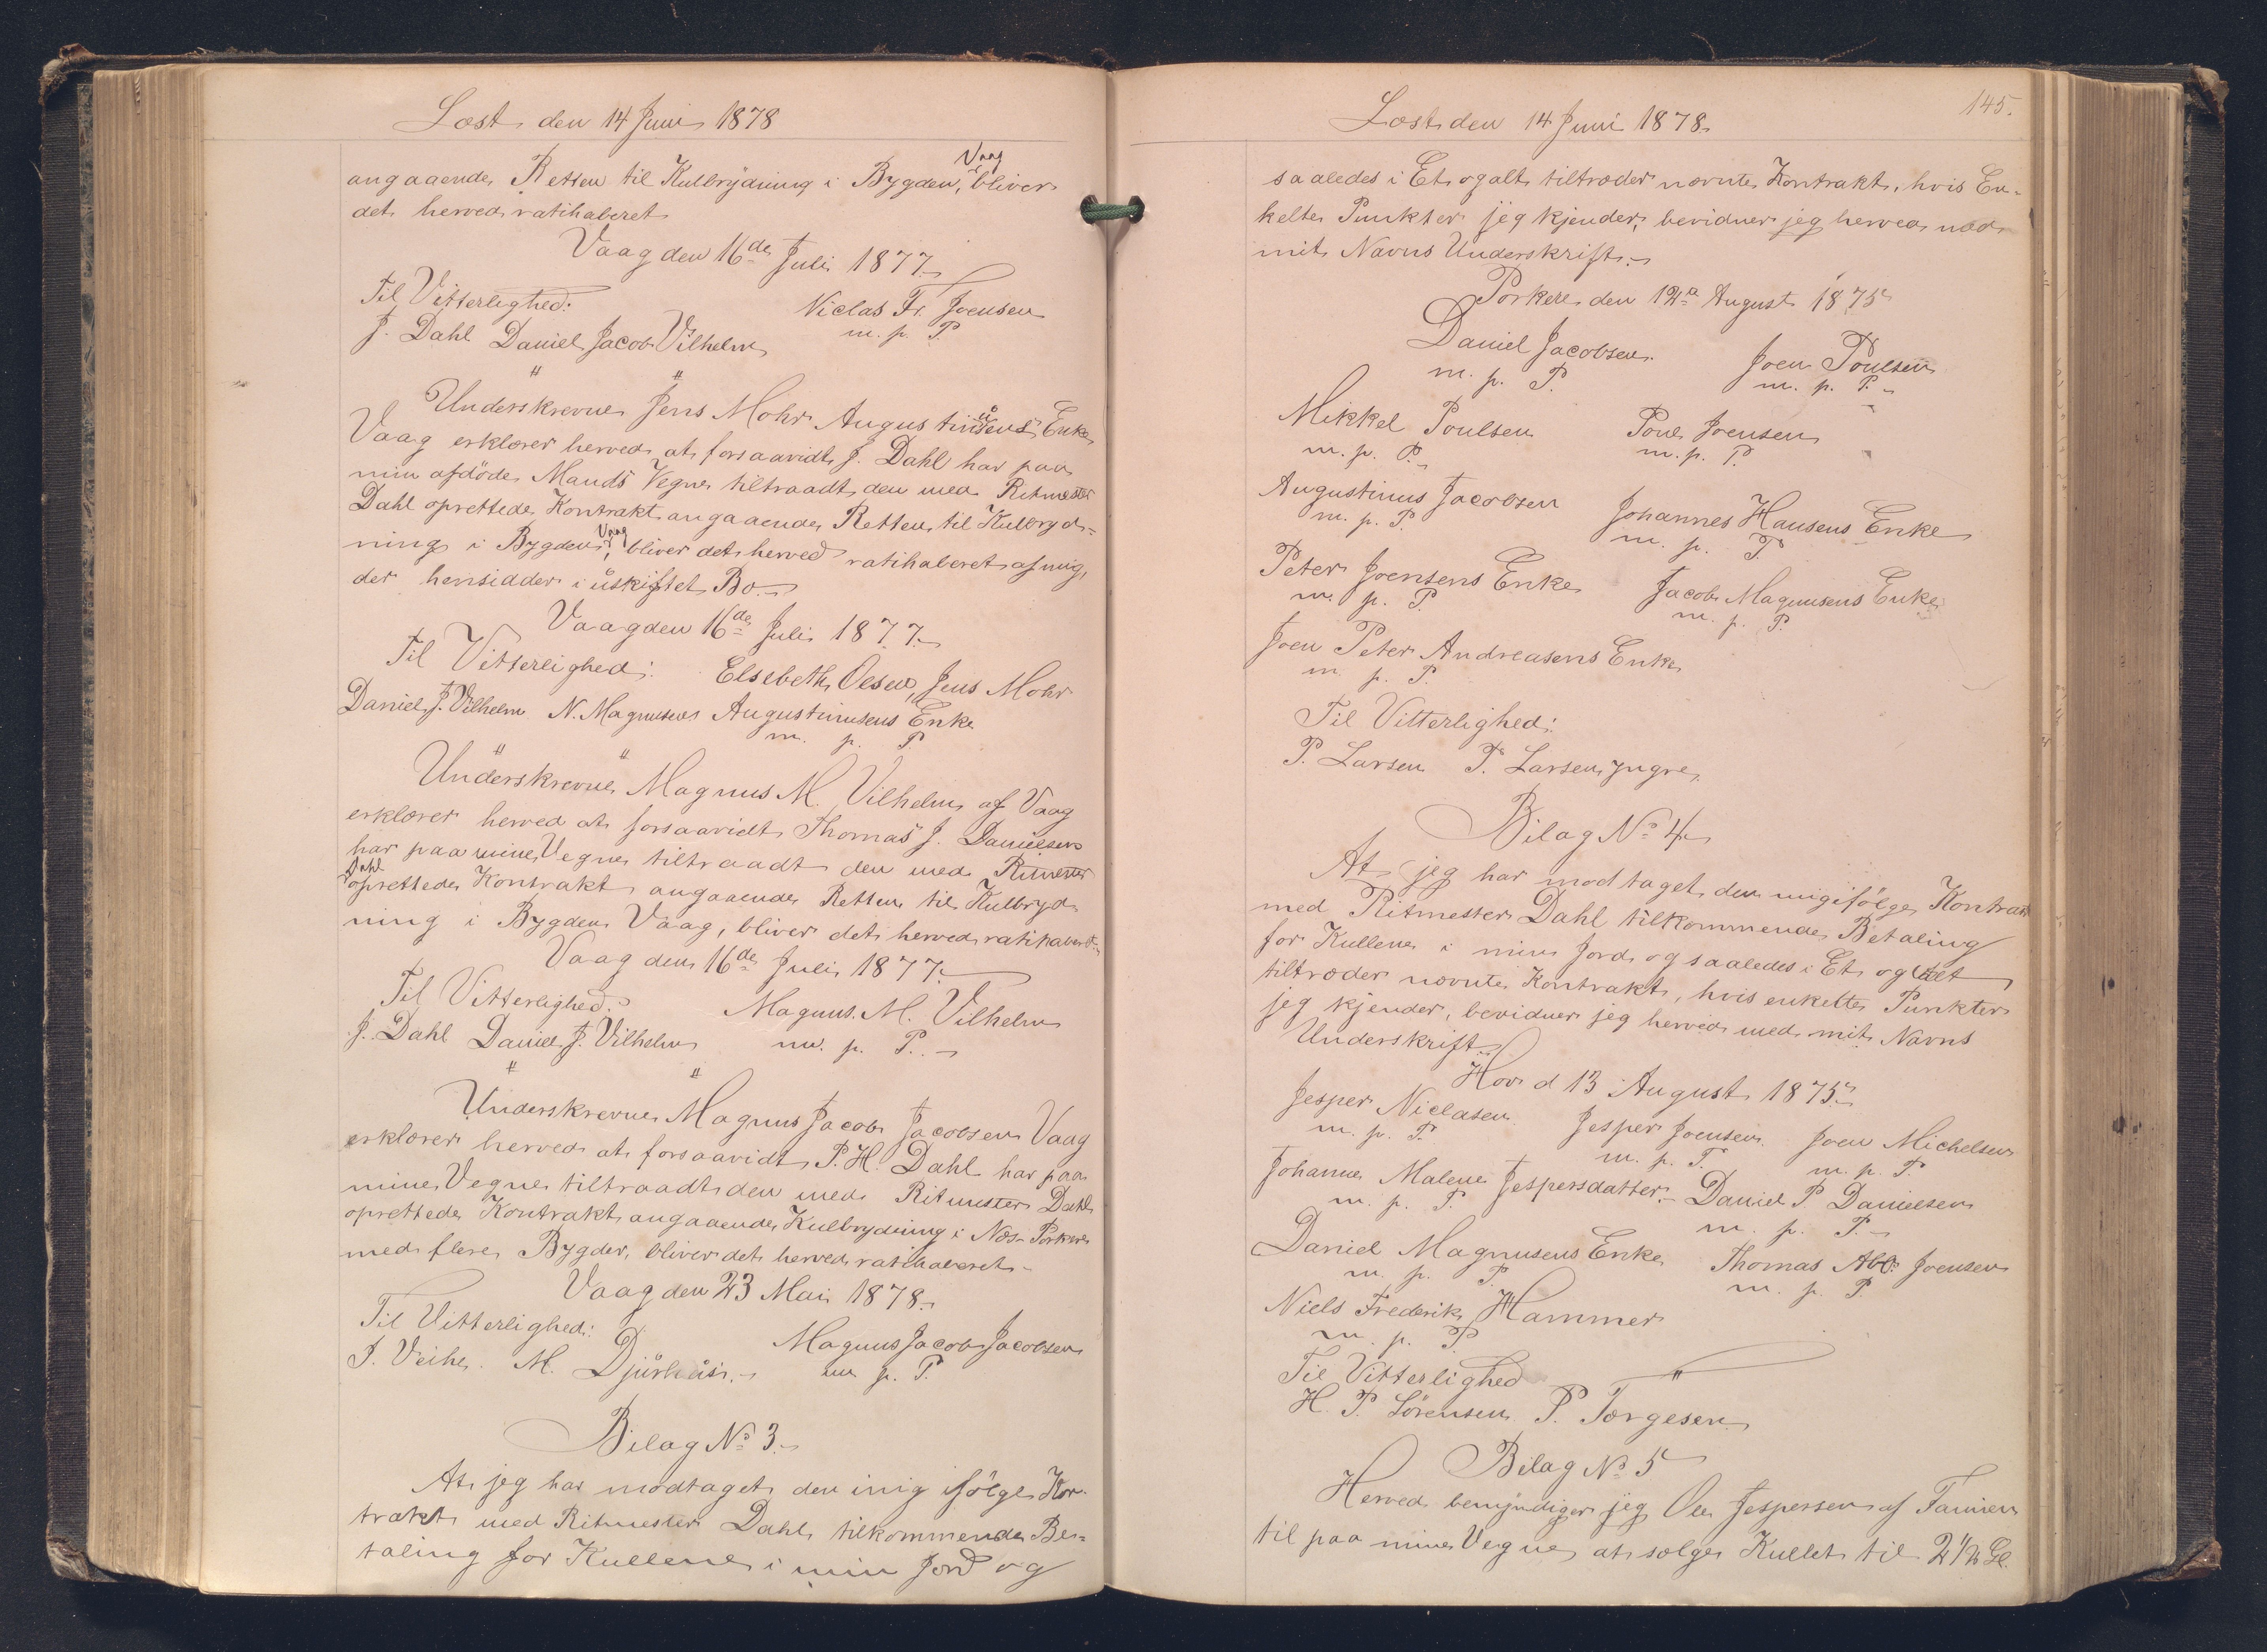 Læst den 14 Juni 1878
angaaende Retten til Kulbrydning i Bygden, Vaag bliver
det herved ratihaberet
Vaag den 16de Juli 1877.
Til Vitterlighed: Niclas Fr. Joensen
J. Dahl Daniel Jacob Vilhelm m. p. P.
Underskrevne Jens Mohr Augustinusens Enke
Vaag erklærer herved at forsaavidt J. Dahl har paa
min afdöde Mands Vegne tiltraadt den med Ritmester
Dahl oprettede Kontrakt angaaende Retten til Kulbryd-
ning i Bygden, Vaag bliver det herved ratihaberet af mig,
der hensidder i uskiftet Bo.
Vaag den 16de Juli 1877.
Til Vitterlighed: Elsebeth Oesen, Jens Mohr
Daniel J. Vilhelm N. Magnusen Augustinusens Enke
m. p. P
Underskrevne Magnus M. Vilhelm af Vaag
erklærer herved at forsaavidt Thomas J. Danielsen
har paa mine Vegne tiltraadt den med Ritmester
Dahl oprettede Kontrakt angaaende Retten til Kulbryd-
ning i Bygden Vaag, bliver det herved ratihaberet.
Vaag den 16de Juli 1877.
Til Vitterlighed: Magnus. M. Vilhelm
J. Dahl Daniel J. Vilhelm m. p. P.
Underskrevne Magnus Jacob Jacobsen Vaag
erklærer herved at forsaavidt P. H. Dahl har paa
mine Vegne tiltraadt den med Ritmester Dahl
oprettede Kontrakt angaaende Kulbrydning i Næs Porkere
med flere Bygder, bliver det herved ratihaberet.
Vaag den 23 Mai 1878.
Til Vitterlighed: Magnus Jacob Jacobsen
J. Veihe. M. Djurhuus. m p. P.
Bilag No 3.
At jeg har modtaget den mig ifölge Kon-
trakt med Ritmester Dahl tilkommende Be-
taling for Kullene i min Jord og
145.
Læst den 14 Juni 1878.
saaledes i Et og alt tiltræder nævnte Kontrakt, hvis En-
kelte Punkter jeg kjender, bevidner jeg herved med
mit Navns Underskrift.
Porkere den 12te August 1875
Daniel Jacobsen. Joen Poulsen
m. p. P. m. p. P.
Mikkel Poulsen Poul Joensen
m. p. P. m. p. P.
Augustinus Jacobsen Johannes Hansens Enke
m. p. P. m. p. P.
Peter Joensens Enke Jacob Magnusens Enke
m. p. P. m. p. P.
Joen Peter Andreasens Enke
m. p. P.
Til Vitterlighed:
P. Larsen P. Larsen yngre
Bilag No 4
At jeg har modtaget den mig ifölge Kontrakt
med Ritmester Dahl tilkommende Betaling
for Kullene i min Jord og saaledes i Et og alt
tiltræder nævnte Kontrakt, hvis enkelte Punkter
jeg kjender, bevidner jeg herved med mit Navns
Underskrift
Hov d 13 August 1875
Jesper Niclasen. Jesper Joensen. Joen Michelsen
m. p. P. m. p. P. m. p. P.
Johanne Malene Jespersdatter. Daniel P Danielsen
m. p. P. m. p. P.
Daniel Magnusens Enke Thomas Abr. Joensen
m. p. P. m. p. P
Niels Frederik Hammer
m. p. P
Til Vitterlighed
H. P. Sörensen P. Torgesen
Bilag No 5
Herved bemyndiger jeg Ole Jespersen af Famien
til paa mine Vegne at sælge Kullet til 2 1/2 Gl.